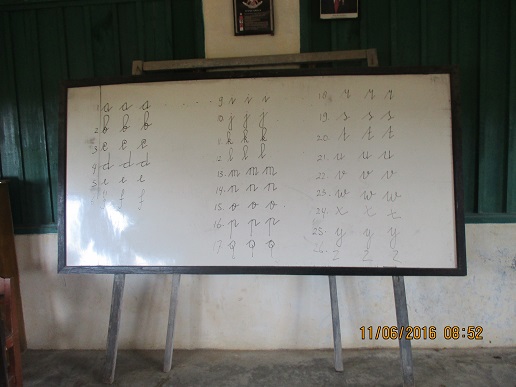 1. a a a
2. b b b
3. c c c
4. d d d
5. e e e
f f
9. i i i
j j j
k k k
l l l
13. m m m
14. n n n
15. o o o
16. p p p
17. q q q
18. r r r
19. s s s
20. t t t
21. u u u
22. v v v
23. w w w
24. x x x
25. y y y
26. z z z
11/06/2016 08:52